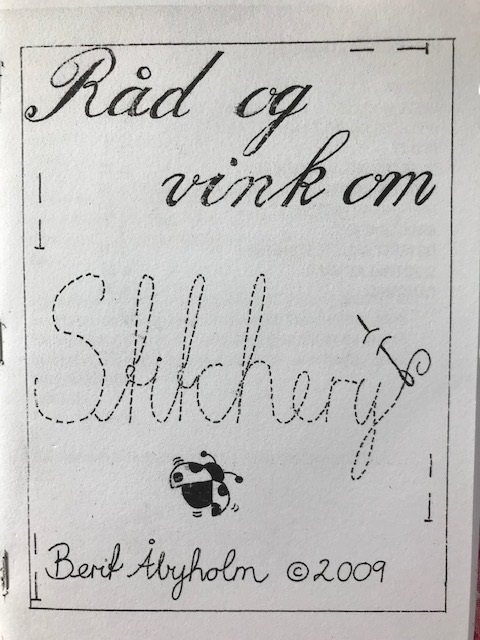 Råd og
vink om
Stitchery
Berit Åbyholm ©2009